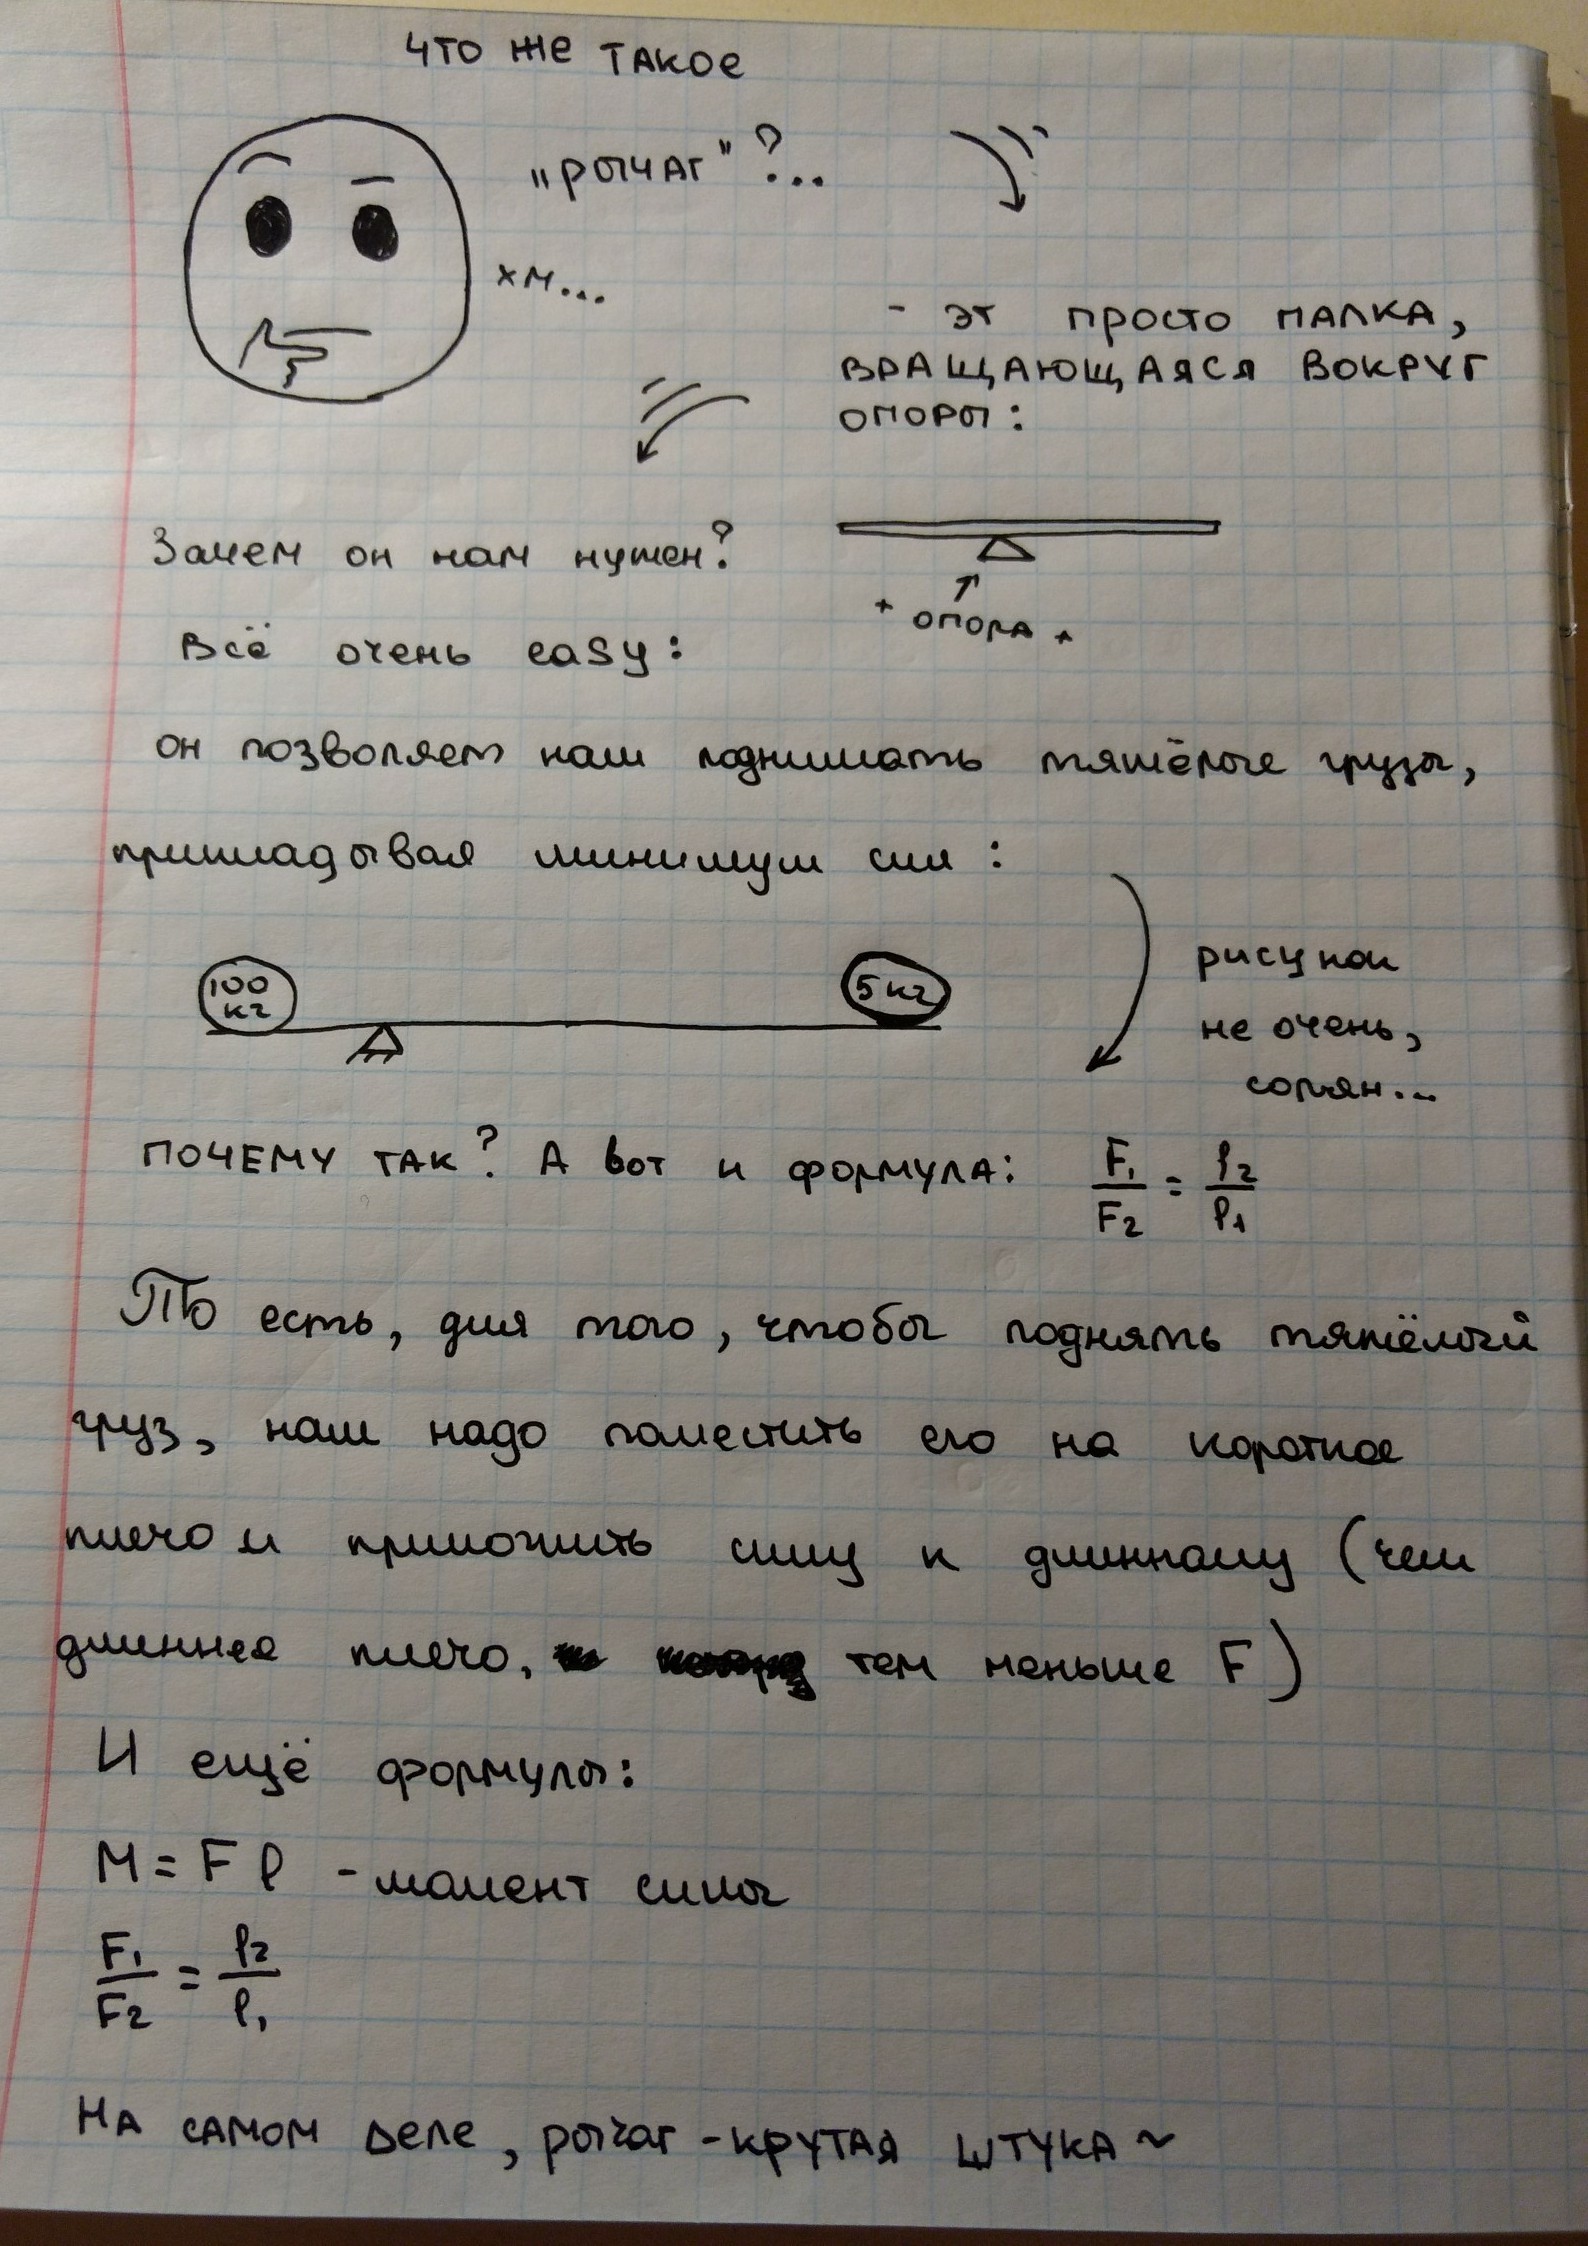 что же такое
„рычаг"?...
хм...
- эт просто палка,
вращающаяся вокруг
опоры:
Зачем он нам нужен?
опора
Всё очень easy:
он позволяет нам поднимать тяжёлые грузы,
прикладывая минимум сил:
100
кг
5 кг
рисунок
не очень,
сорян...
почему так? А вот и формула: F₁/F₂ = l₂/l₁
То есть, для того, чтобы поднять тяжёлый
груз, нам надо поместить его на короткое
плечо и приложить силу к длинному (чем
длиннее плечо, тем меньше F)
И ещё формулы:
M = F l - момент силы
F₁/F₂ = l₂/l₁
На самом деле, рычаг - крутая штука ~